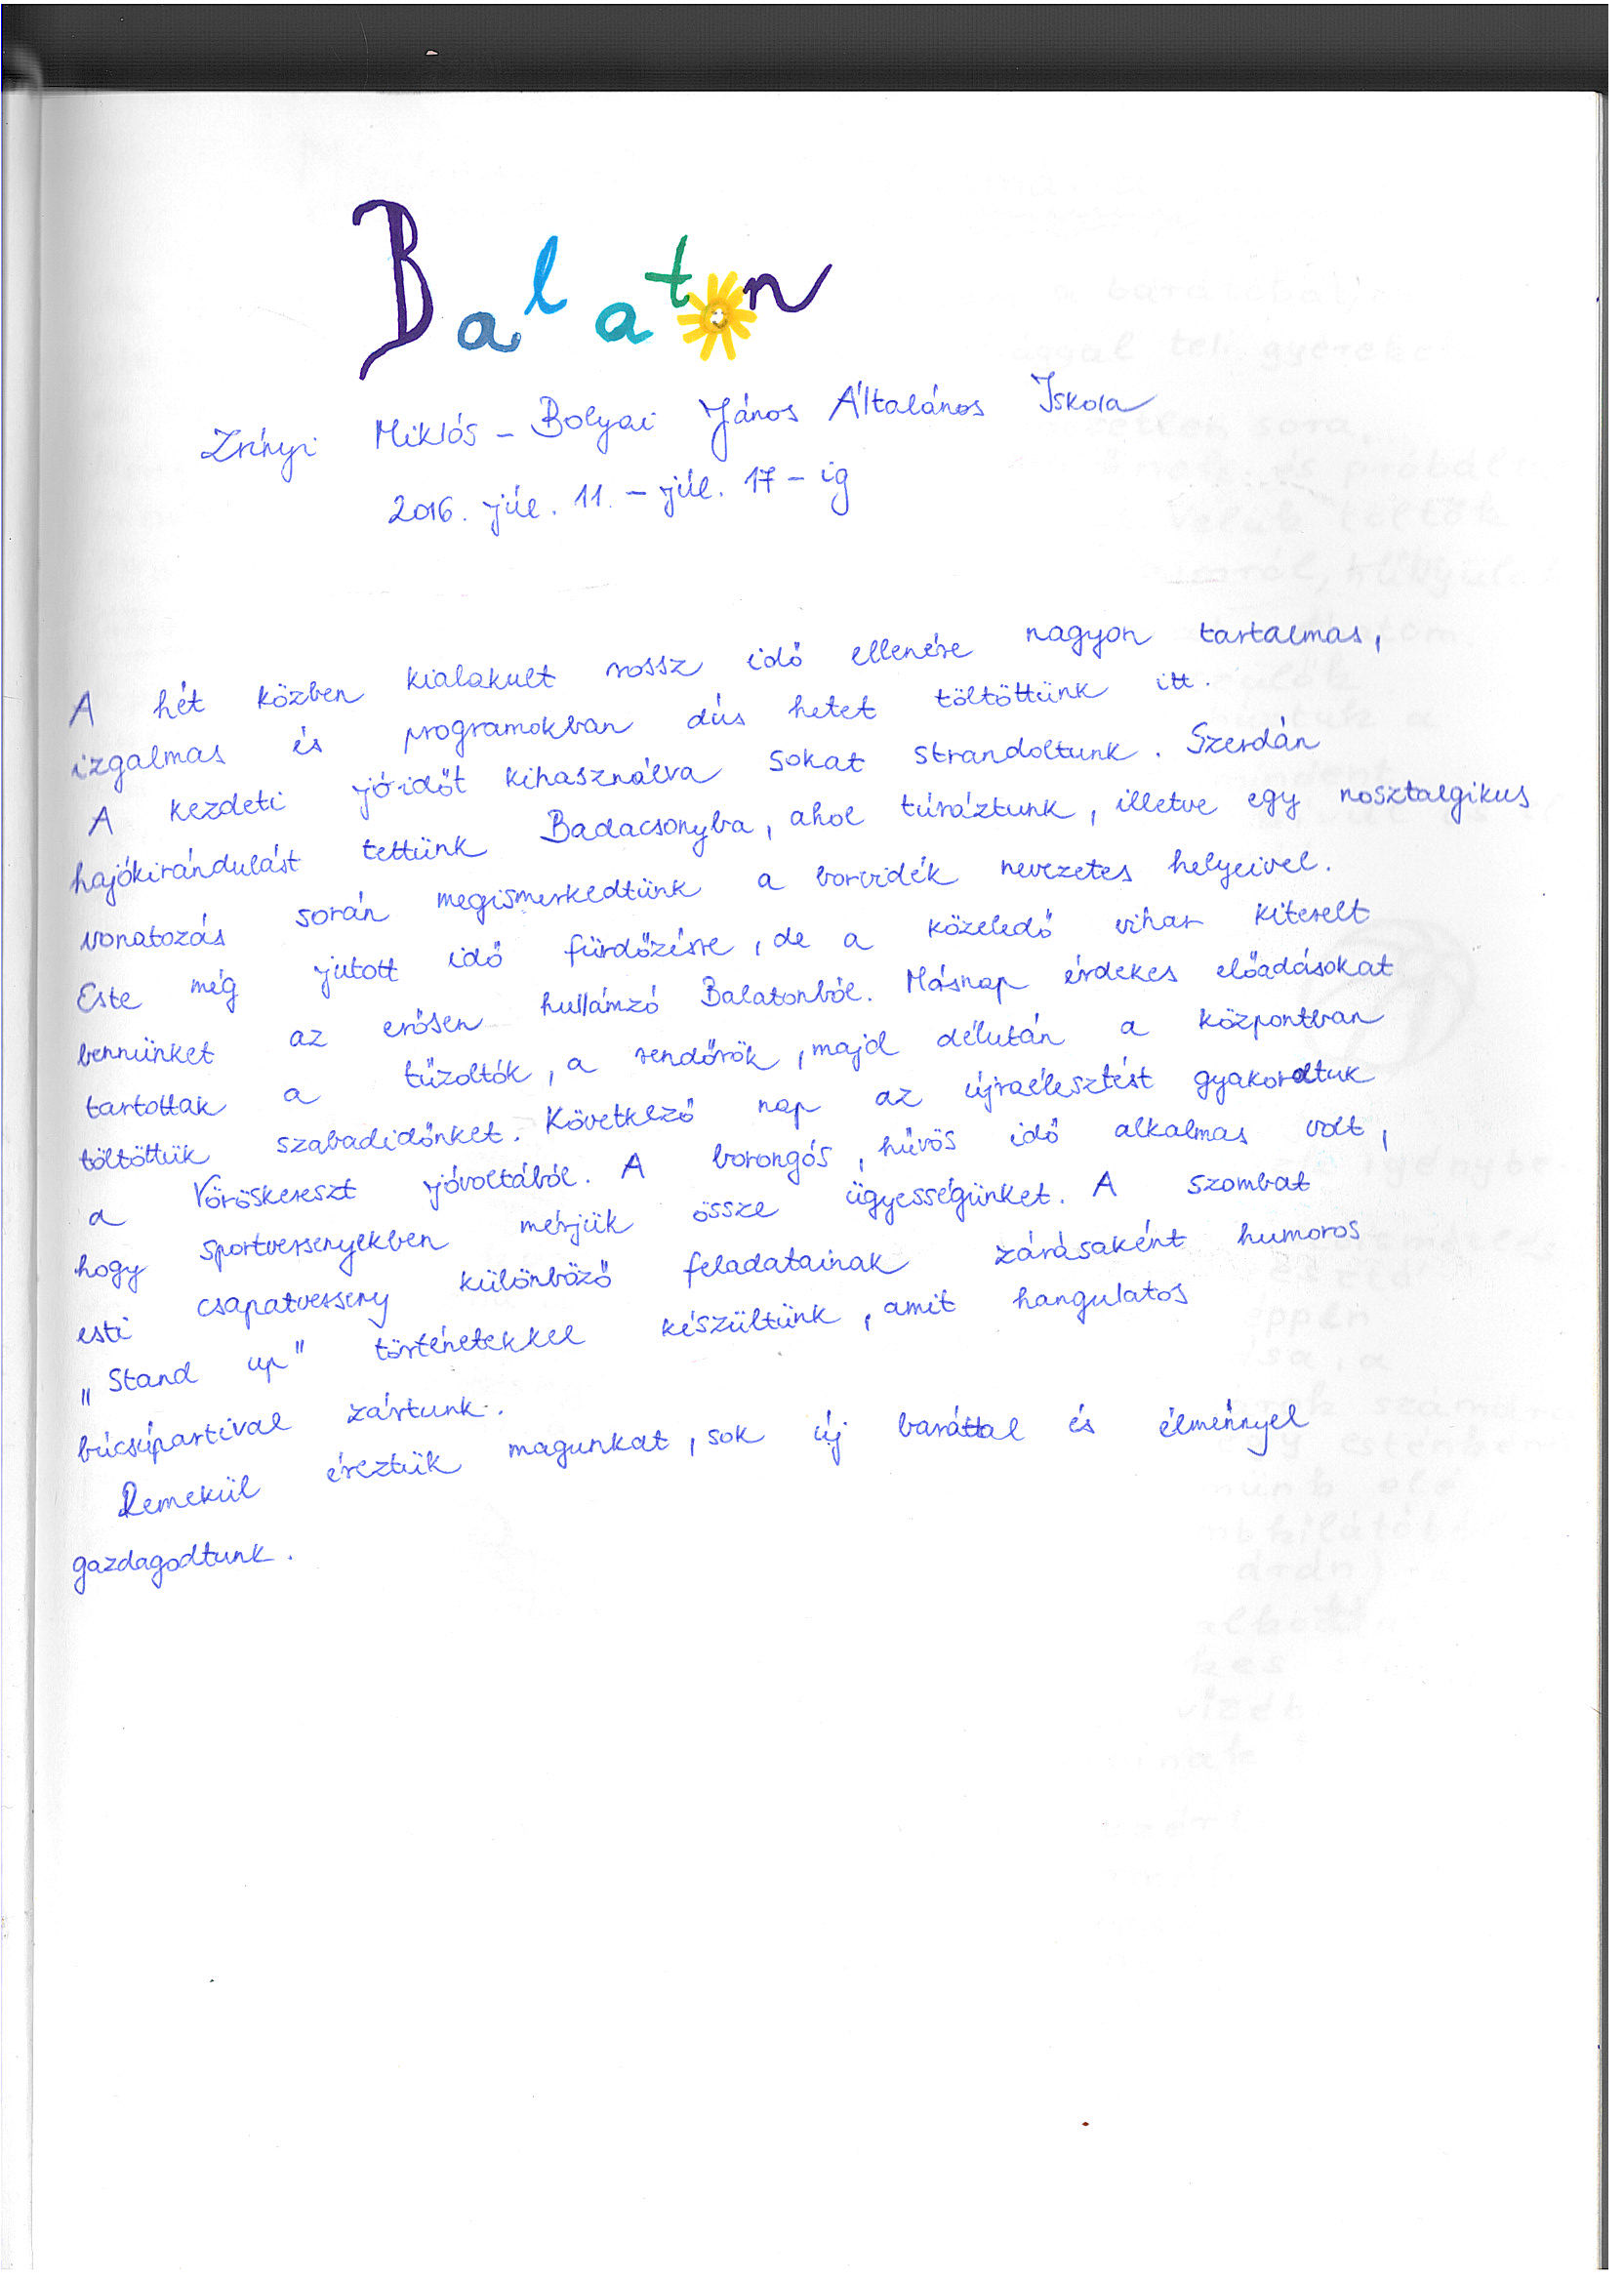 Balaton
Zrínyi Miklós - Bolyai János Általános Iskola
2016. júl. 11. - júl. 17 - ig
A hét közben kialakult rossz idő ellenére nagyon tartalmas,
izgalmas és programokban dús hetet töltöttünk itt.
A kezdeti jó időt kihasználva sokat strandoltunk. Szerdán
hajókirándulást tettünk Badacsonyba, ahol túráztunk, illetve egy nosztalgikus
vonatozás során megismerkedtünk a borvidék nevezetes helyeivel.
Este még jutott idő fürdőzésre, de a közeledő vihar kiterelt
bennünket az erősen hullámzó Balatonból. Másnap érdekes előadásokat
tartottak a tűzoltók, a rendőrök, majd délután a központban
töltöttük szabadidőnket. Következő nap az újraélesztést gyakoroltuk
a Vöröskereszt jóvoltából. A borongós, hűvös idő alkalmas volt,
hogy sportversenyekben mérjük össze ügyességünket. A szombat
esti csapatverseny különböző feladatainak zárásaként humoros
„Stand up" történetekkel készültünk, amit hangulatos
búcsúpartival zártunk.
Remekül éreztük magunkat, sok új baráttal és élménnyel
gazdagodtunk.